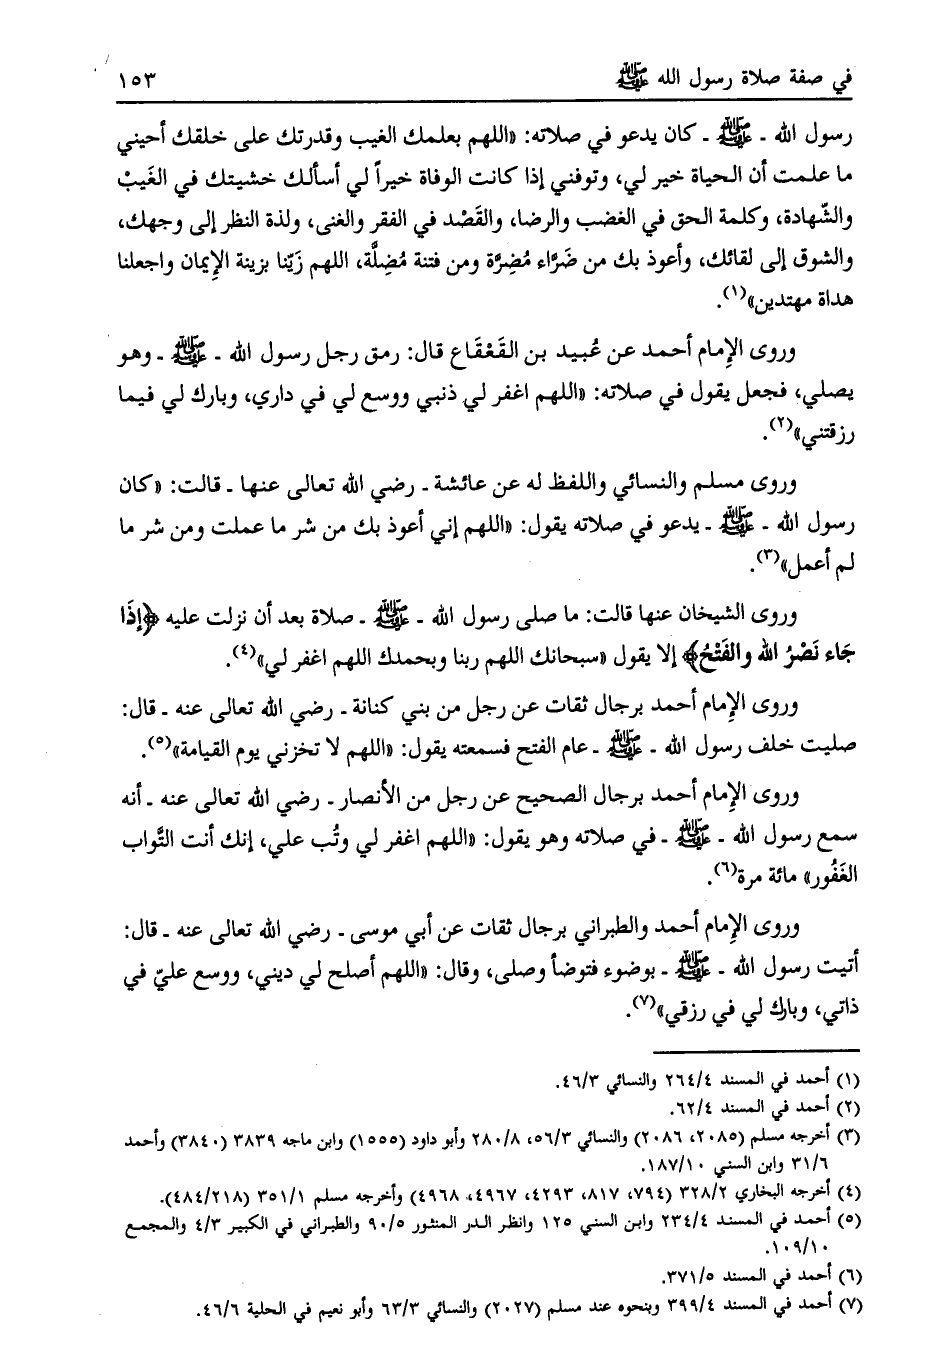 في صفة صلاة رسول الله ﷺ ١٥٣
رسول الله ـ ﷺ ـ كان يدعو في صلاته: «اللهم بعلمك الغيب وقدرتك على خلقك أحيني
ما علمت أن الحياة خير لي، وتوفني إذا كانت الوفاة خيراً لي أسألك خشيتك في الغَيبْ
والشّهادة، وكلمة الحق في الغضب والرضا، والقَصْد في الفقر والغنى، ولذة النظر إلى وجهك،
والشوق إلى لقائك، وأعوذ بك من ضَرَّاء مُضِرَّة ومن فتنة مُضِلَّة، اللهم زَيّنا بزينة الإِيمان واجعلنا
هداة مهتدين»(١).
وروى الإِمام أحمد عن عُبيد بن القَعْقَاع قال: رمق رجل رسول الله ـ ﷺ ـ وهو
يصلي، فجعل يقول في صلاته: «اللهم اغفر لي ذنبي ووسع لي في داري، وبارك لي فيما
رزقتني»(٢).
وروى مسلم والنسائي واللفظ له عن عائشة ـ رضي الله تعالى عنها ـ قالت: «كان
رسول الله ـ ﷺ ـ يدعو في صلاته يقول: «اللهم إني أعوذ بك من شر ما عملت ومن شر ما
لم أعمل»(٣).
وروى الشيخان عنها قالت: ما صلى رسول الله ـ ﷺ ـ صلاة بعد أن نزلت عليه ﴿إذَا
جَاء نَصْرُ الله والفَتْحُ﴾ إلا يقول «سبحانك اللهم ربنا وبحمدك اللهم اغفر لي»(٤).
وروى الإِمام أحمد برجال ثقات عن رجل من بني كنانة ـ رضي الله تعالى عنه ـ قال:
صليت خلف رسول الله ـ ﷺ ـ عام الفتح فسمعته يقول: «اللهم لا تخزني يوم القيامة»(٥).
وروى الإِمام أحمد برجال الصحيح عن رجل من الأنصار ـ رضي الله تعالى عنه ـ أنه
سمع رسول الله ـ ﷺ ـ في صلاته وهو يقول: «اللهم اغفر لي وتُب علي، إنك أنت التَّواب
الغَفُور» مائة مرة(٦).
وروى الإِمام أحمد والطبراني برجال ثقات عن أبي موسى ـ رضي الله تعالى عنه ـ قال:
أتيت رسول الله ـ ﷺ ـ بوضوء فتوضأ وصلى، وقال: «اللهم أصلح لي ديني، ووسع عليّ في
ذاتي، وبارك لي في رزقي»(٧).
(١) أحمد في المسند ٢٦٤/٤ والنسائي ٤٦/٣.
(٢) أحمد في المسند ٦٢/٤.
(٣) أخرجه مسلم (٢٠٨٥، ٢٠٨٦) والنسائي ٥٦/٣، ٢٨٠/٨ وأبو داود (١٥٥٥) وابن ماجه ٣٨٣٩ (٣٨٤٠) وأحمد
٣١/٦ وابن السني ١٨٧/١٠.
(٤) أخرجه البخاري ٣٢٨/٢ (٧٩٤، ٨١٧، ٤٢٩٣، ٤٩٦٧، ٤٩٦٨) وأخرجه مسلم ٣٥١/١ (٤٨٤/٢١٨).
(٥) أحمد في المسند ٢٣٤/٤ وابن السني ١٢٥ وانظر الدر المنثور ٩٠/٥ والطبراني في الكبير ٤/٣ والمجمع
١٠٩/١٠.
(٦) أحمد في المسند ٣٧١/٥.
(٧) أحمد في المسند ٣٩٩/٤ وبنحوه عند مسلم (٢٠٢٧) والنسائي ٦٣/٣ وأبو نعيم في الحلية ٤٦/٦.